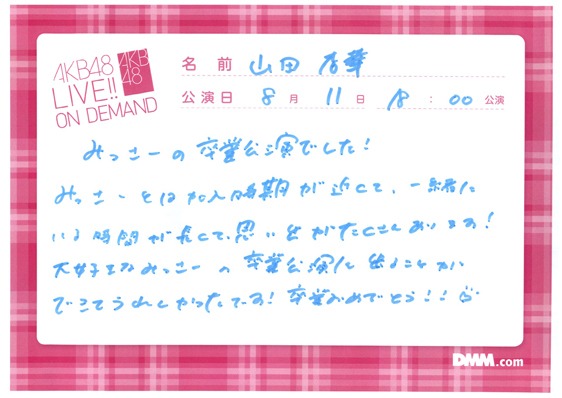 AKB48
LIVE!!
ON DEMAND
AKB
48
名前 山田杏華
公演日 8月 11日 18:00 公演
みっきーの卒業公演でした!
みっきーとは加入時期が近くて、一緒に
いる時間が長くて、思い出がたくさんあります!
大好きなみっきーの卒業公演に出ることが
できてうれしかったです!卒業おめでとう!!
DMM.com